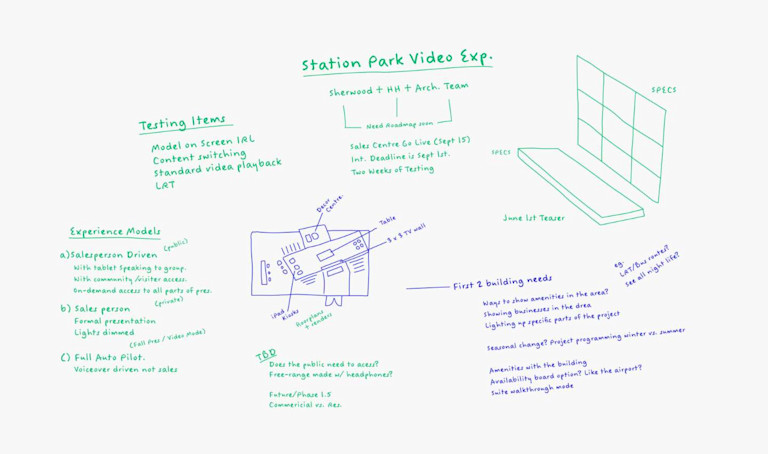 Station Park Video Exp.
Sherwood + HH + Arch. Team
Need Roadmap soon
Sales Centre Go Live (Sept 15)
Int. Deadline is Sept 1st.
Two Weeks of Testing
Testing Items
Model on Screen IRL
Content switching
Standard video playback
LRT
SPECS
SPECS
June 1st Teaser
Experience Models
(public)
a) Salesperson Driven
With tablet speaking to group.
With community/visiter access.
On-demand access to all parts of pres.
(private)
b) Sales person
Formal presentation
Lights dimmed
(Full Pres / Video Mode)
C) Full Auto Pilot.
Voiceover driven not sales
Decor
Centre.
Table
3 x 3 TV wall
iPad
Kiosks
floorplans
+ renders
TBD
Does the public need to acess?
Free-range made w/ headphones?
Future/Phase 1.5
Commericial vs. Res.
First 2 building needs
eg.
LRT/Bus routes?
See all night life?
Ways to show amenities in the area?
Showing businesses in the area
Lighting up specific parts of the project
Seasonal change? Project programming winter vs. summer
Amenities with the building
Availability board option? Like the airport?
Suite walkthrough mode